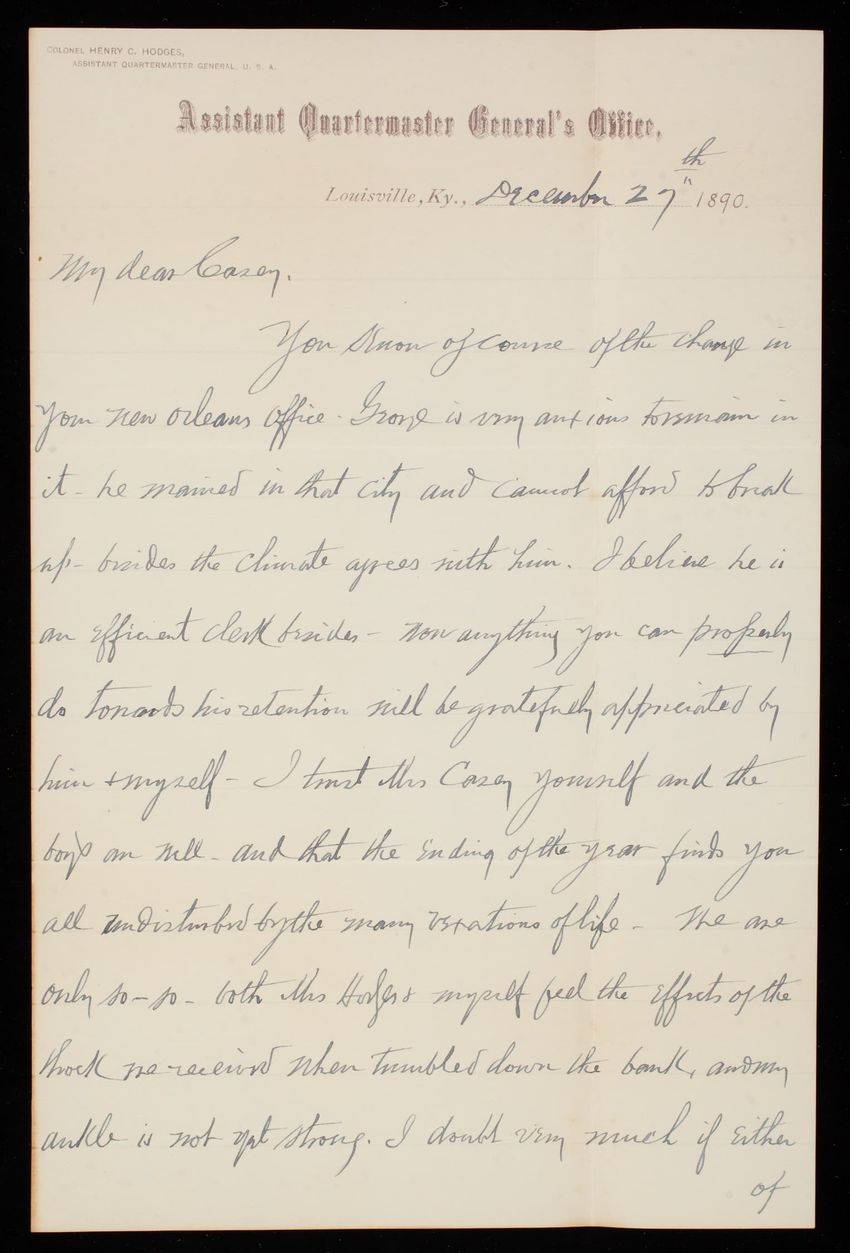 COLONEL HENRY C. HODGES,
ASSISTANT QUARTERMASTER GENERAL, U. S. A.
Assistant Quartermaster General's Office,
Louisville, Ky., December 27th 1890.
My dear Casey.
You know of course of the change in
your new orleans office - George is very anxious to remain in
it - he married in that city and cannot afford to break
up - besides the climate agrees with him. I believe he is
an efficient clerk besides - now anything you can properly
do towards his retention will be gratefully appreciated by
him & myself - I trust Mrs Casey yourself and the
boys are well - and that the ending of the year finds you
all undisturbed by the many vexations of life - We are
only so-so - both Mrs Hodges & myself feel the effects of the
shock we received when tumbled down the bank, and my
ankle is not yet strong. I doubt very much if either
of